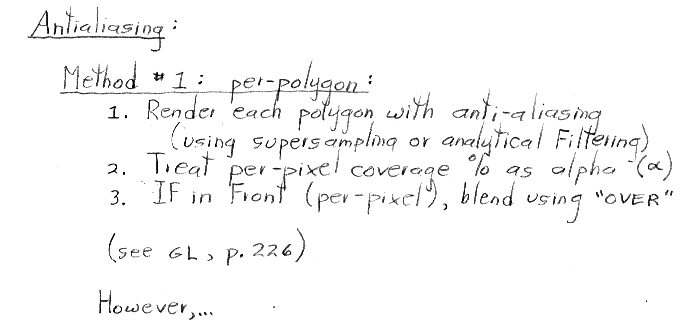 Antialiasing:
Method #1: per-polygon:
1. Render each polygon with anti-aliasing
(using supersampling or analytical Filtering)
2. Treat per-pixel coverage % as alpha (α)
3. IF in Front (per-pixel), blend using "OVER"
(see GL, p.226)
However,...